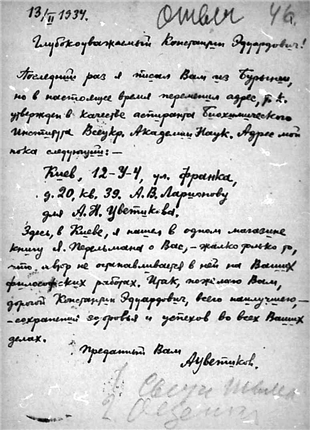 13/II 1934.
46.
Глубокоуважаемый Константин Эдуардович!
Последний раз я писал Вам из Бурыни,
но в настоящее время переменил адрес, т. к.
утвержден в качестве аспиранта Биохимического
Института Всеукр. Академии Наук. Адрес мой
пока следующий:—
Киев, 12-У-4, ул. Франка,
д. 20, кв. 39. А. В. Ларионову
для А. Н. Цветикова.
Здесь, в Киеве, я нашел в одном магазине
книгу Я. Перельмана о Вас,—жалко только то,
что автор не останавливается в ней на Ваших
философских работах. Итак, пожелаю Вам,
дорогой Константин Эдуардович, всего наилучшего—
-сохранения здоровья и успехов во всех Ваших
делах.
Преданный Вам
АЦветиков.